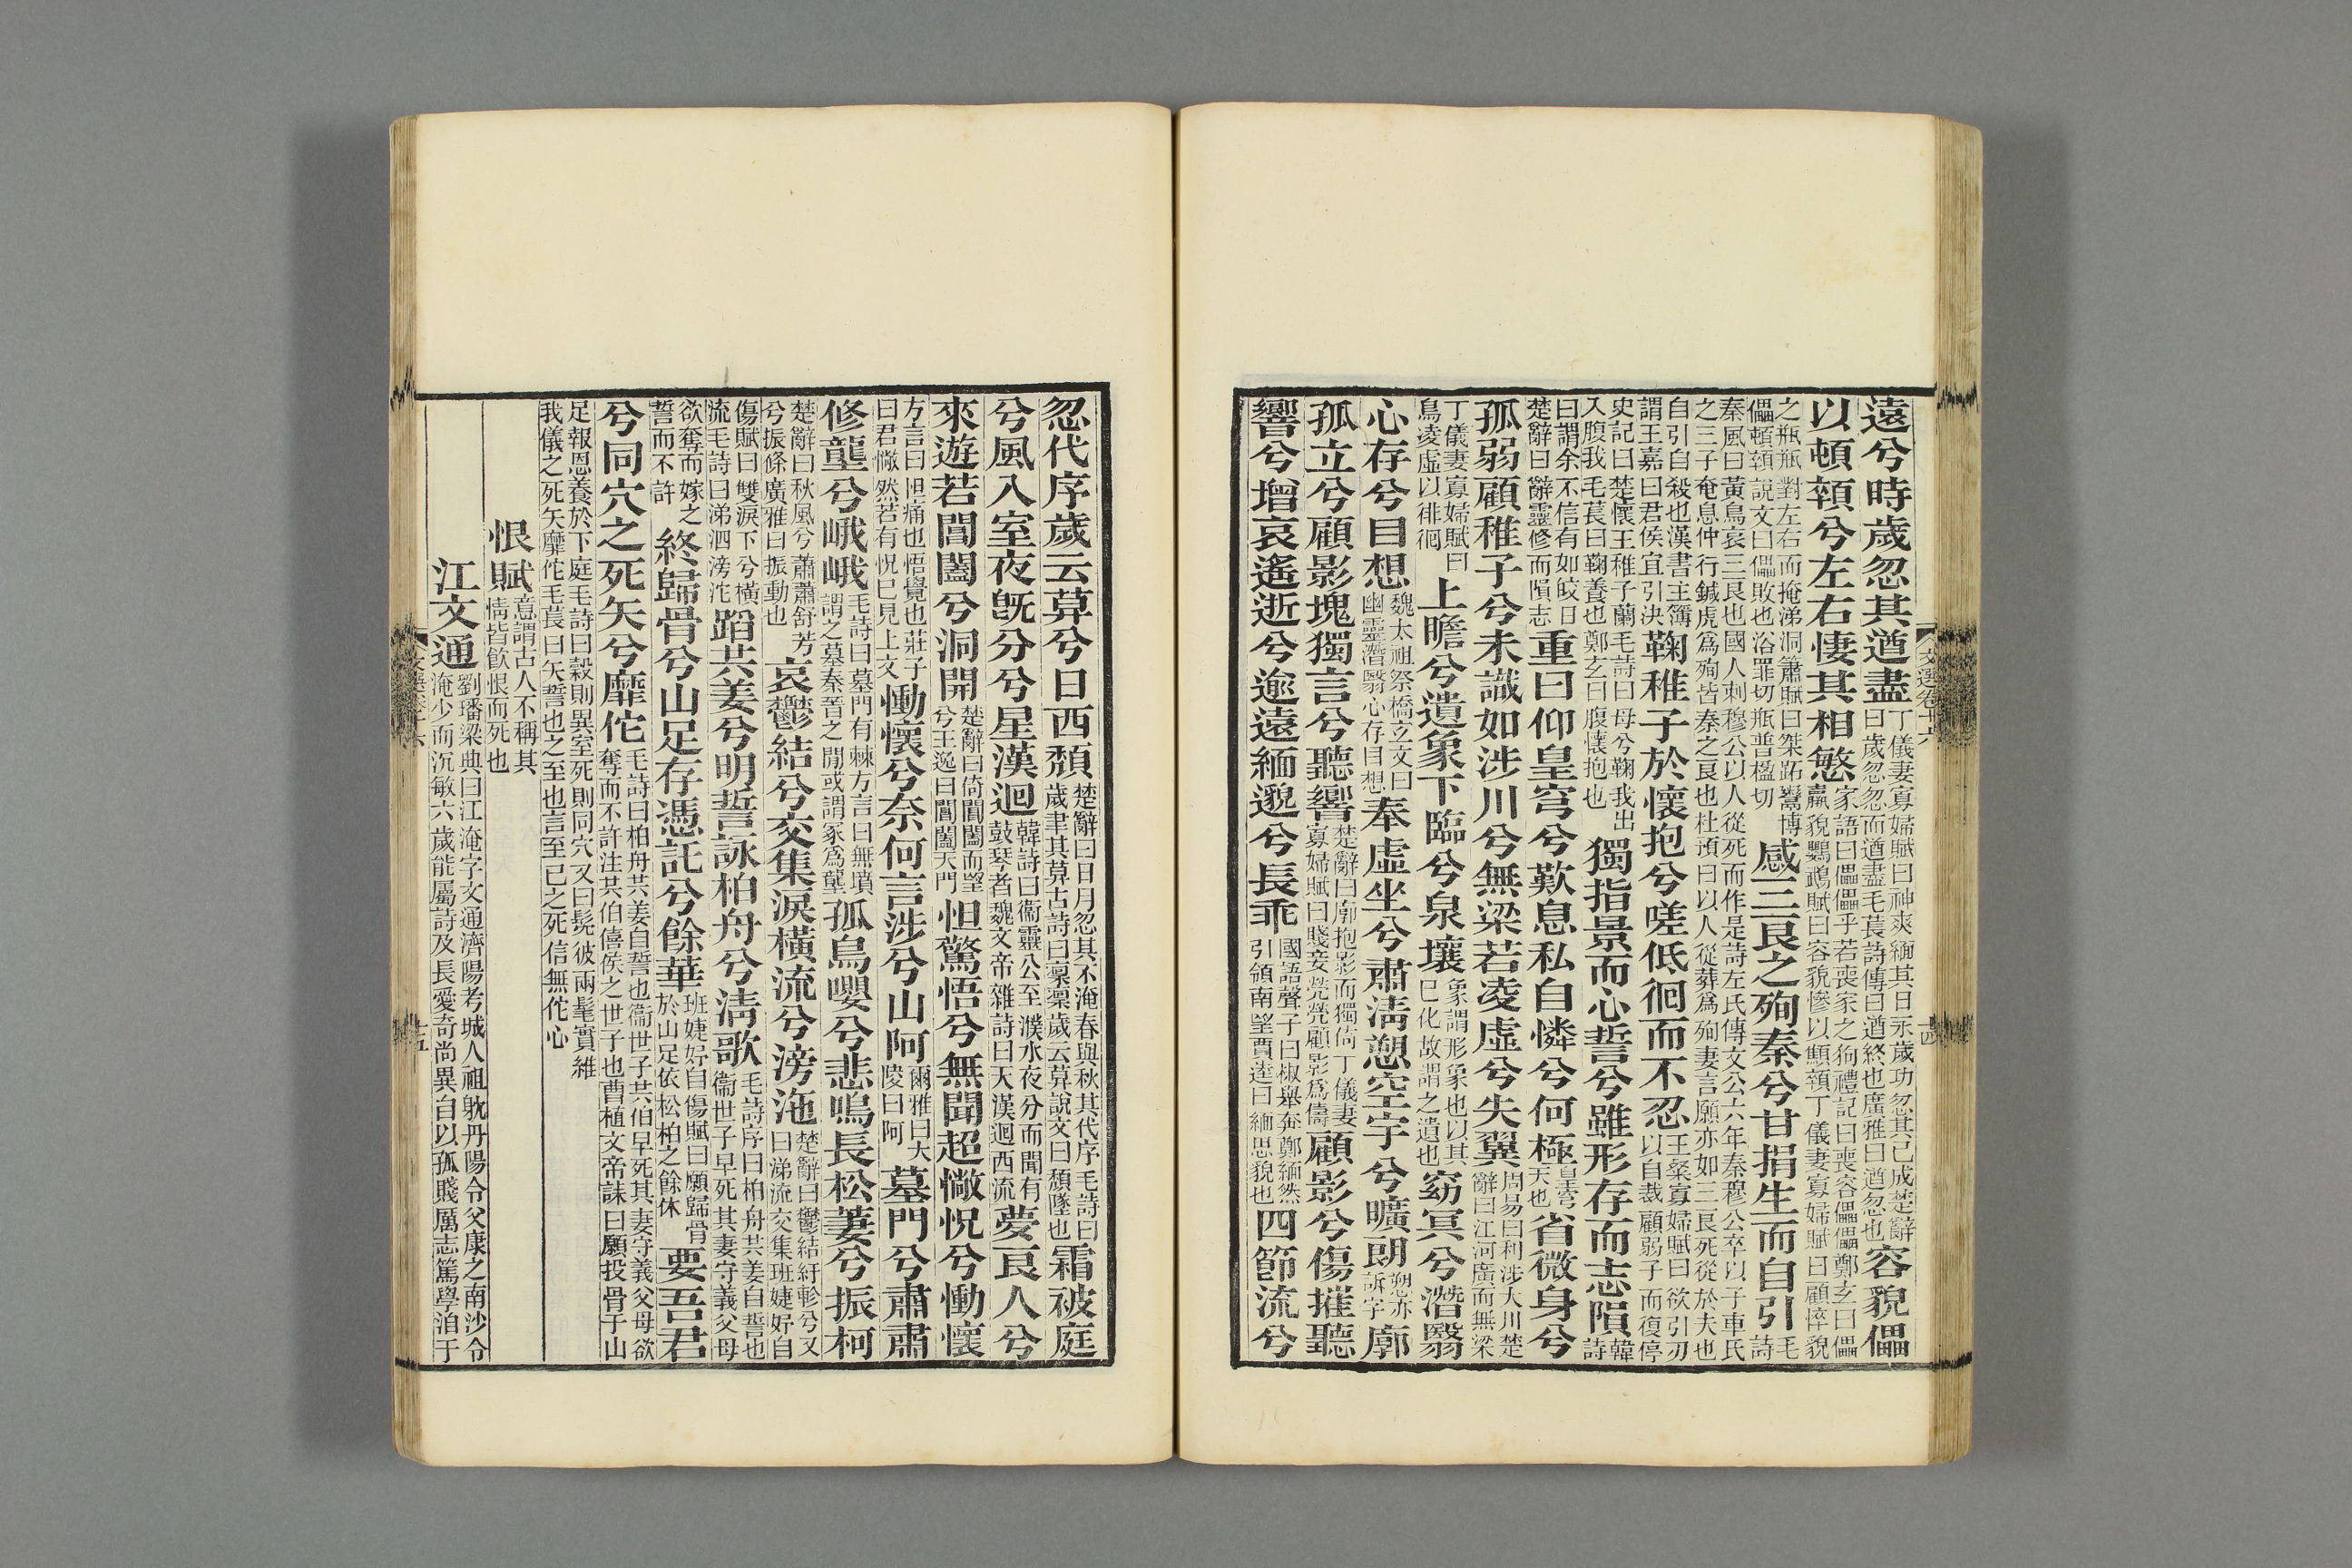 遠兮時歲忽其遒盡丁儀妻寡婦賦曰神爽緬其日永歲功忽其已成楚辭曰歲忽忽而遒盡毛萇詩傳曰遒終也廣雅曰遒忽也容貌儡
以頓顇兮左右悽其相慜家語曰儡儡乎若喪家之狗禮記曰喪容儡儡鄭玄曰儡羸貌鸚鵡賦曰容貌慘以顦顇丁儀妻寡婦賦曰顧悴貌
之瓶瓶對左右而掩涕洞簫賦曰桀跖鬻博儡頓顇說文曰儡敗也洛罪切瓶普楹切感三良之殉秦兮甘捐生而自引毛詩
秦風曰黃鳥哀三良也國人刺穆公以人從死而作是詩左氏傳文公六年秦穆公卒以子車氏之三子奄息仲行鍼虎爲殉皆秦之良也杜預曰以人從葬爲殉妻言願亦如三良死從於夫也
自引自殺也漢書主簿謂王嘉曰君侯宜引決鞠稚子於懷抱兮嗟低徊而不忍王粲寡婦賦曰欲引刃以自裁顧弱子而復停
史記曰楚懷王稚子蘭毛詩曰母兮鞠我出入腹我毛萇曰鞠養也鄭玄曰腹懷抱也獨指景而心誓兮雖形存而志隕韓詩
曰謂余不信有如皎日楚辭曰辭靈修而隕志重曰仰皇穹兮歎息私自憐兮何極皇穹天也省微身兮
孤弱顧稚子兮未識如涉川兮無梁若凌虛兮失翼周易曰利涉大川楚辭曰江河廣而無梁
丁儀妻寡婦賦曰鳥凌虛以徘徊上瞻兮遺象下臨兮泉壤象謂形象也以其已化故謂之遺也窈冥兮潛翳
心存兮目想魏太祖祭橋玄文曰幽靈潛翳心存目想奉虛坐兮肅清愬空宇兮曠朗愬亦訴字廓
孤立兮顧影塊獨言兮聽響楚辭曰廓抱影而獨倚丁儀妻寡婦賦曰賤妾煢煢顧影爲儔顧影兮傷摧聽
響兮增哀遙逝兮逾遠緬邈兮長乖國語聲子曰椒舉奔鄭緬然引領南望賈逵曰緬思貌也四節流兮
文選卷十六
十四
忽代序歲云暮兮日西頹楚辭曰日月忽其不淹春與秋其代序毛詩曰歲聿其莫古詩曰凜凜歲云暮說文曰頹墜也霜被庭
兮風入室夜旣分兮星漢迴韓詩曰衞靈公至濮水夜分而聞有鼓琴者魏文帝雜詩曰天漢迴西流夢良人兮
來遊若閶闔兮洞開楚辭曰倚閶闔而望兮王逸曰閶闔天門怛驚悟兮無聞超惝怳兮慟懷
方言曰怛痛也悟覺也莊子曰君惝然若有怳已見上文慟懷兮奈何言涉兮山阿爾雅曰大陵曰阿墓門兮肅肅
修壟兮峨峨毛詩曰墓門有棘方言曰無墳謂之墓秦晉之閒或謂冢爲壟孤鳥嚶兮悲鳴長松萋兮振柯
楚辭曰秋風兮蕭蕭舒芳兮振條廣雅曰振動也哀鬱結兮交集淚橫流兮滂沲楚辭曰鬱結紆軫兮又曰涕流交集班婕妤自
傷賦曰雙淚下兮橫流毛詩曰涕泗滂沱蹈共姜兮明誓詠柏舟兮清歌毛詩序曰柏舟共姜自誓也衞世子早死其妻守義父母
欲奪而嫁之誓而不許終歸骨兮山足存憑託兮餘華班婕妤自傷賦曰願歸骨於山足依松柏之餘休要吾君
兮同穴之死矢兮靡佗毛詩曰柏舟共姜自誓也衞世子共伯早死其妻守義父母欲奪而不許注共伯僖侯之世子也曹植文帝誄曰願投骨于山
足報恩養於下庭毛詩曰穀則異室死則同穴又曰髧彼兩髦實維我儀之死矢靡佗毛萇曰矢誓也之至也言至已之死信無佗心
恨賦意謂古人不稱其情皆飲恨而死也
江文通劉璠梁典曰江淹字文通濟陽考城人祖躭丹陽令父康之南沙令淹少而沉敏六歲能屬詩及長愛奇尚異自以孤賤厲志篤學洎于
文選卷十六
十五